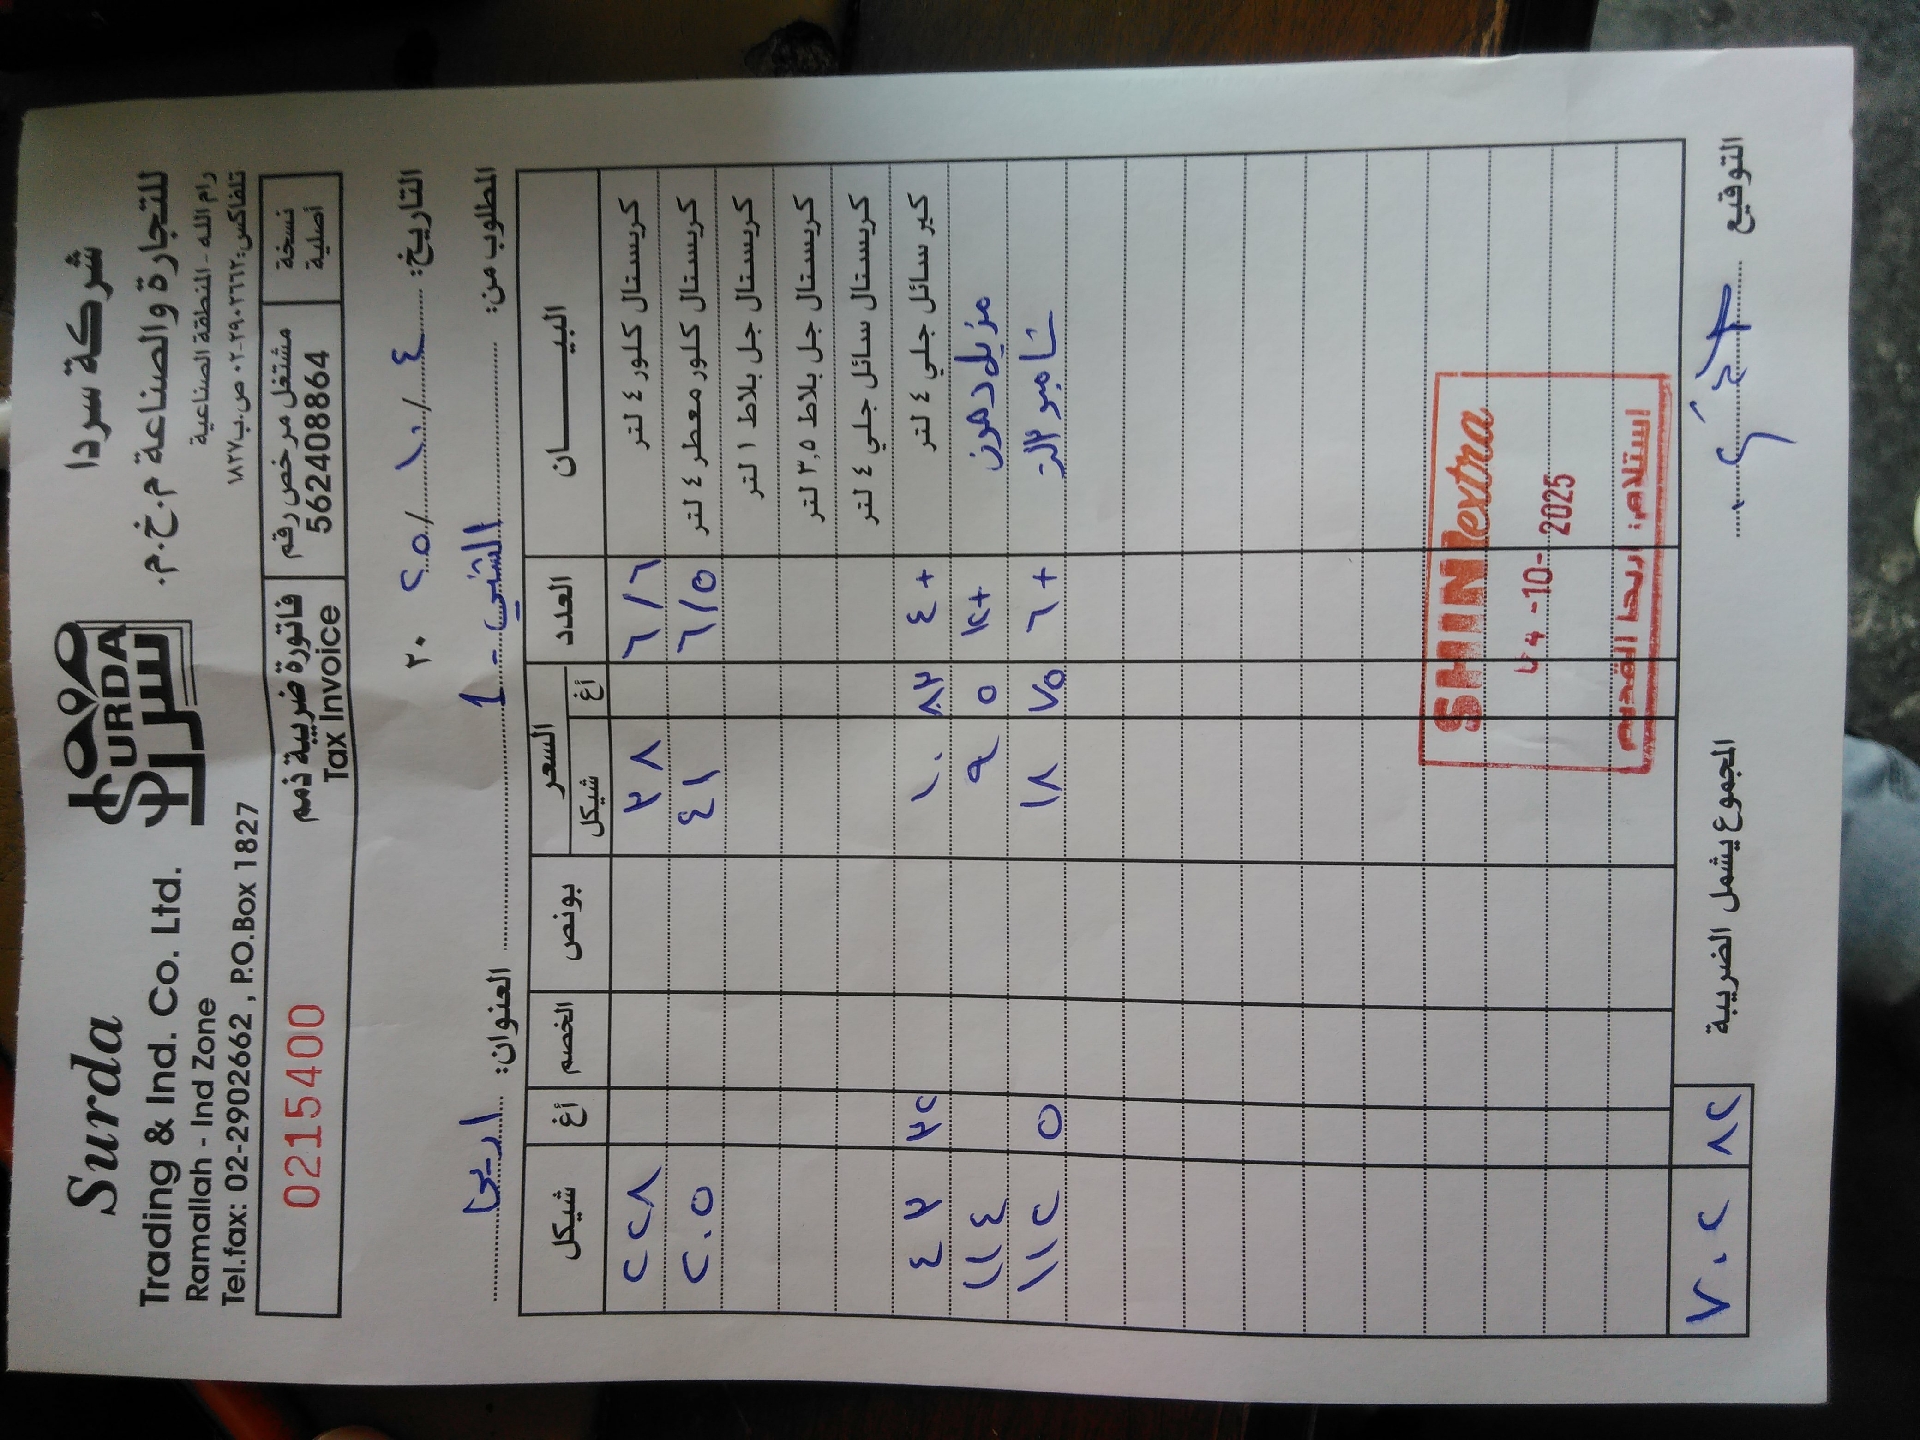 Surda
Trading & Ind. Co. Ltd.
Ramallah - Ind Zone
Tel.fax: 02-2902662 , P.O.Box 1827
SURDA
سردا
شركة سردا
للتجارة والصناعة م.خ.م.
رام الله - المنطقة الصناعية
تلفاكس: ٢٩٠٢٦٦٢-٠٢ ص.ب ١٨٢٧
نسخة أصلية
مشتغل مرخص رقم
562408864
فاتورة ضريبية ذمم
Tax Invoice
0215400
التاريخ: ٤ / ١٠ / ٢٠٢٥
المطلوب من: الشني - 1 العنوان: اريحا
البيـــــان العدد السعر شيكل أغ بونص الخصم أغ شيكل
كريستال كلور ٤ لتر ٦/٦ ٣٨ ٢٢٨
كريستال كلور معطر ٤ لتر ٦/٥ ٤١ ٢٠٥
كريستال جل بلاط ١ لتر
كريستال جل بلاط ٣,٥ لتر
كريستال سائل جلي ٤ لتر
كير سائل جلي ٤ لتر ٤+ ١٠ ٨٣ ٤٣ ٣٢
مزيل دهون ١٢+ ٩ ٥ ١١٤
شامبو ٢لتر ٦+ ١٨ ٧٥ ١١٢ ٥
SHINI extra
-10- 2025
استلام: اريحا القديم
المجموع يشمل الضريبة ٧٠٢ ٨٢
التوقيع